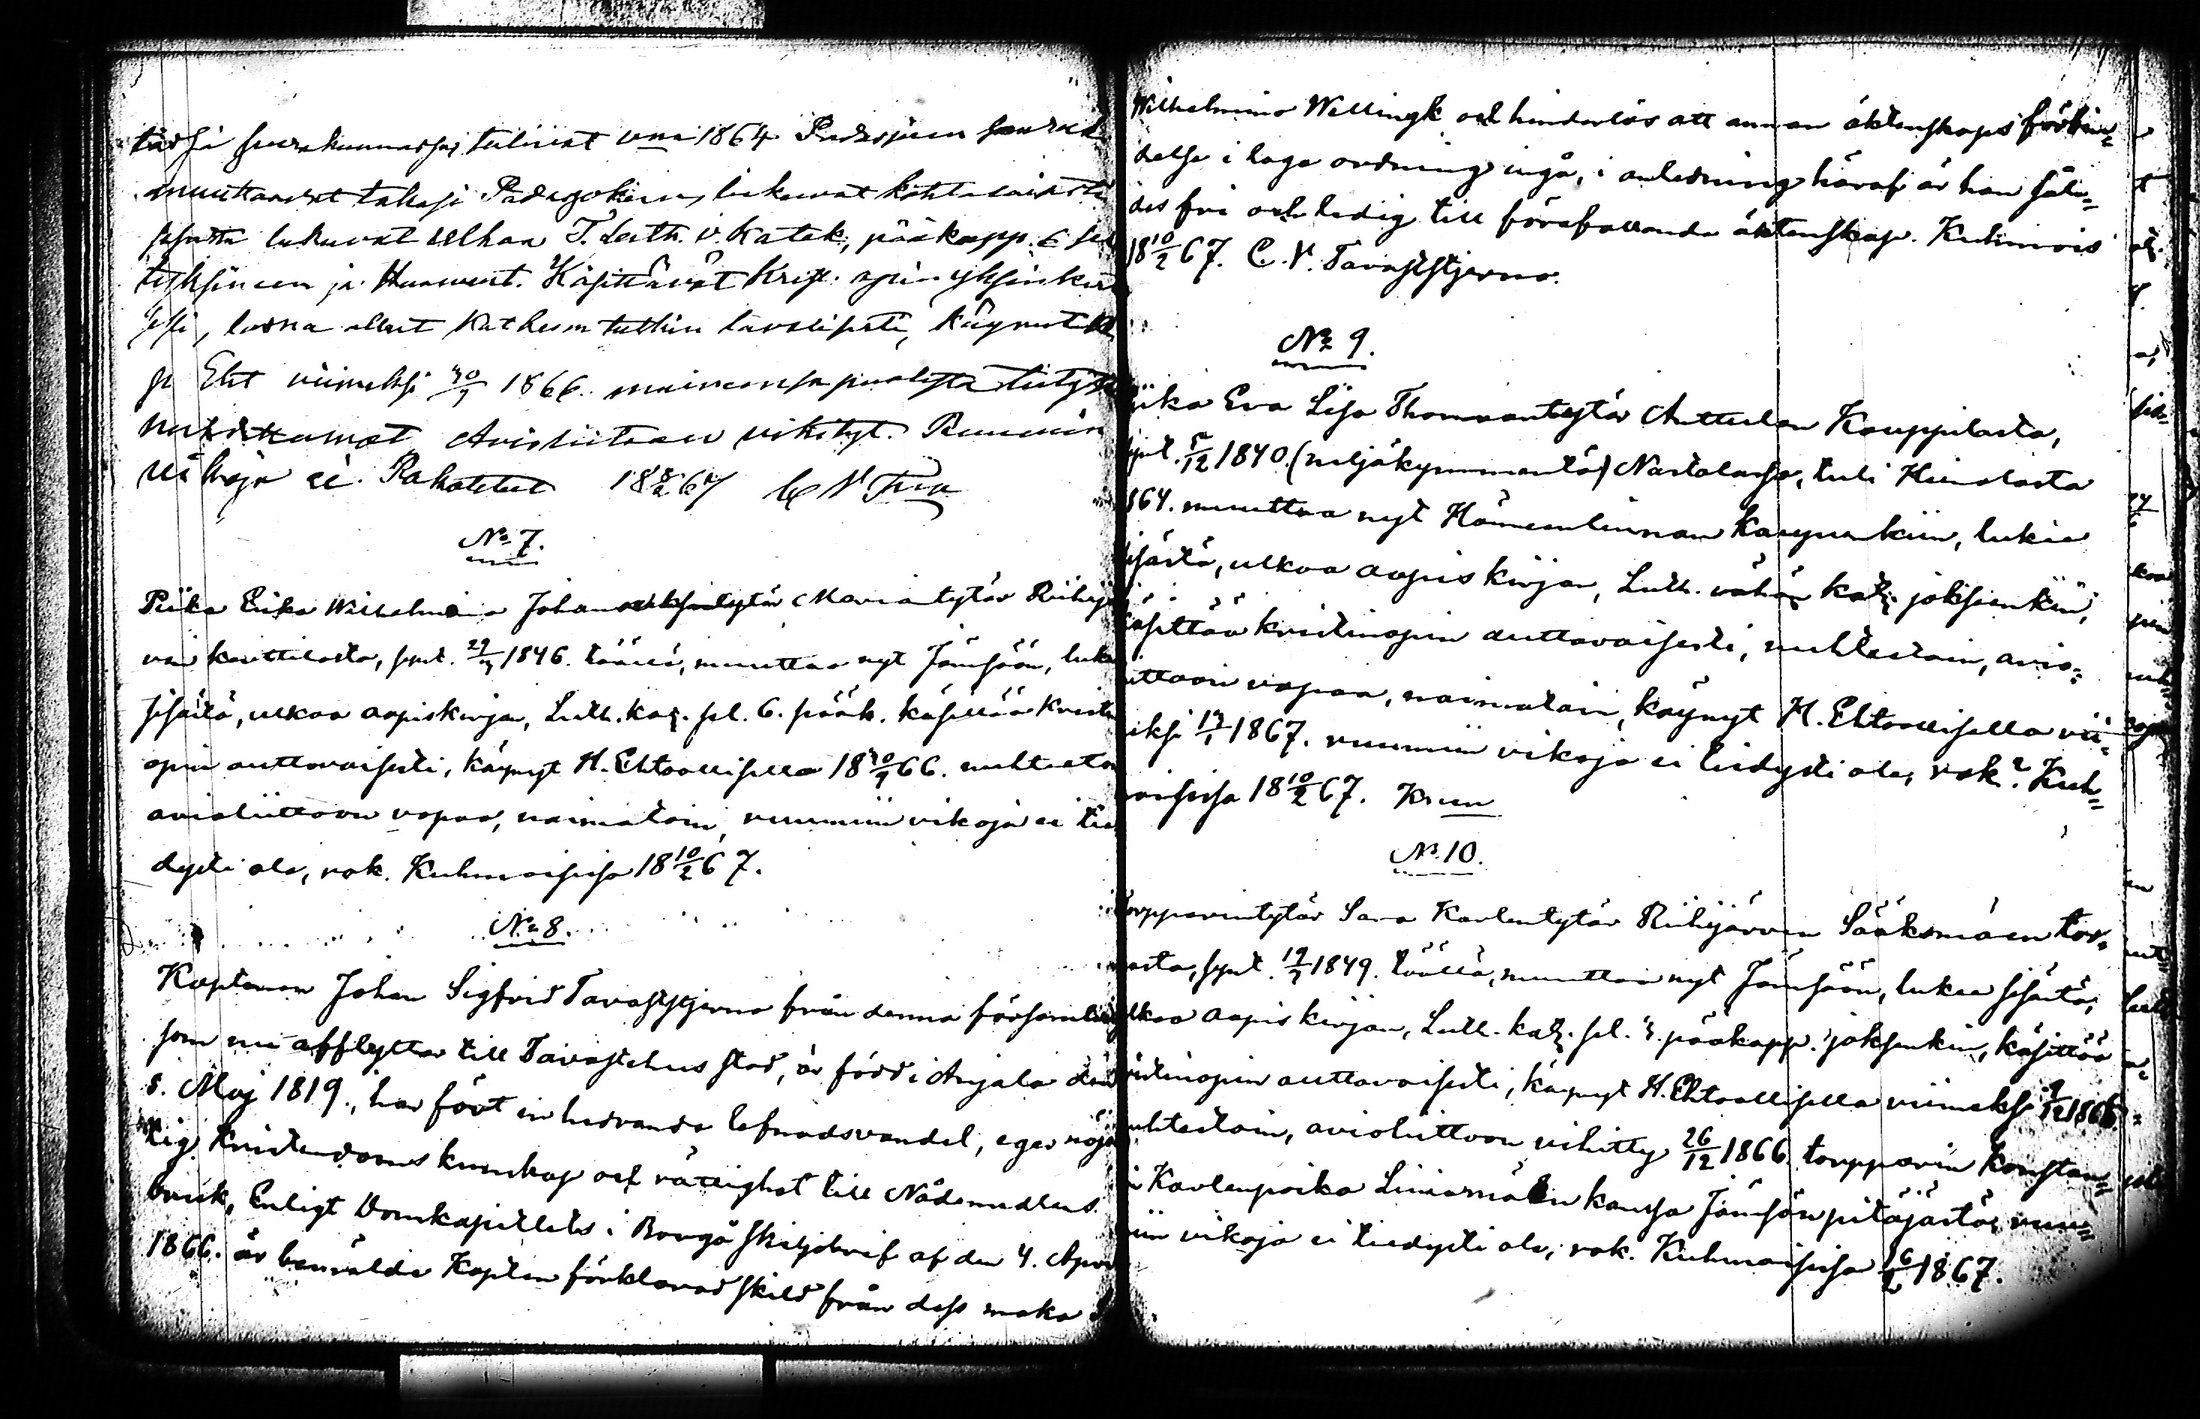 tässä seurakunnassa, tulivat v. 1864 Padasjoen
muuttavat takasi Padasjokeen, lukevat kohtalaisesti
sisältä lukuvat ulkoa T. Luth. v. Katek. pääkapp. 6
Huonent. Käsittävät Krist. opin yksinker
, käyneet
ja Eht viimeksi 30/9 1866. maineensa puolesta
Avioliitoon vihityt. Ruumiin
vikoja ei. Rahoitetut 18 8/2 67 C N
№ 7.
Piika Erika Wilhelmina Johan Mariantytär Riihijär
ven kauttilasta, synt. 29/3 1846. täällä, muuttaa nyt Jämsöön, luke
sisältä, ulkoa aapiskirjan, Luth. kat. sel. 6. pääk. käsittää kristin
opin auttavaisesti, käynyt H. Ehtoollisella 18 30/9 66. nuhteeton
avioliittoon vapaa, naimatoin, ruumiin vikoja ei tie
dysti ole, rok. Kuhmoisissa 18 10/2 67.
№ 8.
Kaptenen Johan Sigfrid Tavaststjerna från denna församling
som nu afflyttar till Tavastehus stad, är född i Anjala den
8. Maj 1819., har fört en hedrande lefnadsvandel, eger nöj
aktig Kristendoms kunskap och rättighet till Nådemedlens
bruk, Enligt Domkapitlets i Borgå skiljobref af den 4. Apr
1866. är benälde Kapten förklarad skild från dess maka
Wilhelmina Wellingk och hinderlös att annan äktenskaps förbin=
delse i laga ordning ingå, i anledning häraf är han såle=
des fri och ledig till förefallande äktenskap. Kuhmois
18 10/2 67. C. N. Tavaststjerna.
№ 9.
Piika Eva Lisa Thomaantytär Anttulan Kauppilasta,
synt. 5/12 1840. (neljäkymmentä) Nastolassa, tuli Heinolasta
1864. muuttaa nyt Hämeenlinnan kaupunkiin, lukee
sisältä, ulkoa aapiskirjan, Luth. vähän kat. joksenkin,
käsittää kristinopin auttavaisesti, nuhteetoin, avio=
liittoon vapaa, naimatoin, käynyt H. Ehtoollisella vii=
meksi 13/1 1867. ruumiin vikoja ei tiedysti ole, rok? Kuh=
moisissa 18 10/2 67. Kuin
№ 10.
Torpparintytär Sara Karlentytär Riihijärven Sääksmäen tor=
pasta, synt. 19/7 1849. täällä, muuttaa nyt Jämsöön, lukee sisältä,
ulkoa aapiskirjan, Luth. kat. sel. 3. pääkapp. joksenkin, käsittää
kristinopin auttavaisesti, käynyt H. Ehtoollisella viimeksi 9/12 1866.
nuhteetoin, avioliittoon vihitty 26/12 1866 torpparin Konstan=
in Karlenpoika Liinamäen kanssa Jämsän pitäjästä, ruu=
miin vikoja ei tiedysti ole, rok. Kuhmoisissa 16/2 1867.